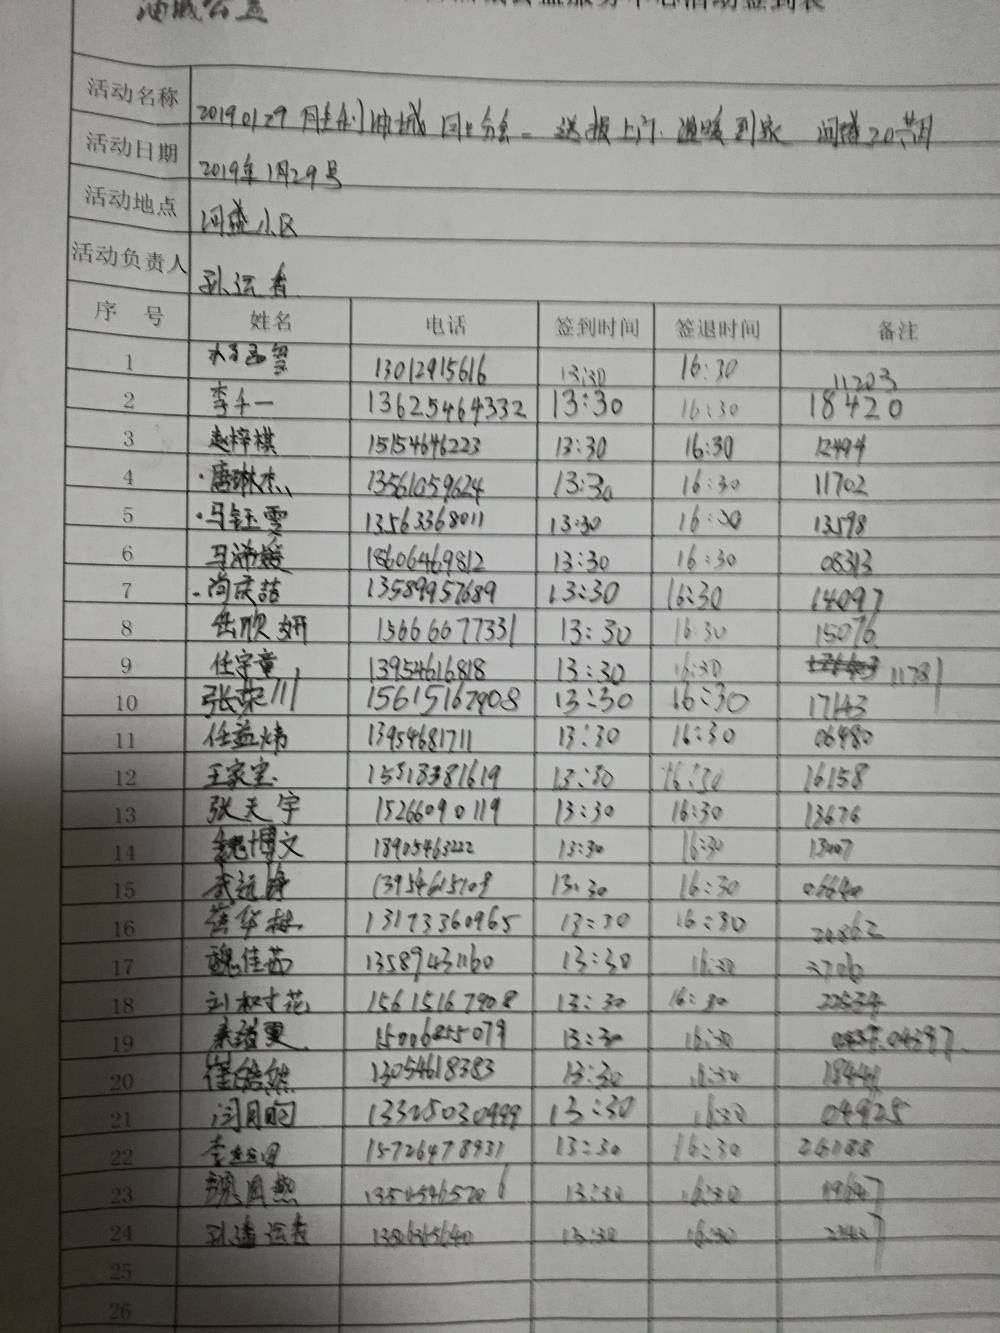 油城公益 服务中心活动签到表
活动名称 20190129 油城 送报上门 温暖到家
活动日期 2019年1月29号
活动地点 河盛小区
活动负责人 孙运香
序 号 姓名 电话 签到时间 签退时间 备注
1 13012915616 13:30 16:30 11203
2 李千一 13625464332 13:30 16:30 18420
3 赵梓棋 15154646223 13:30 16:30 12494
4 唐琳杰 13561059624 13:30 16:30 11702
5 马钰雯 13563368011 13:30 16:30 13598
6 马沛媛 18606469812 13:30 16:30 08313
7 尚庆喆 13589957689 13:30 16:30 14097
8 岳欣妍 15666677331 13:30 16:30 15076
9 任宇童 13954616818 13:30 16:30 11781
10 张荣川 15615167908 13:30 16:30 17143
11 任益炜 13954681711 13:30 16:30 06480
12 王家宝 15318381619 13:30 16:30 16158
13 张天宇 15266090119 13:30 16:30 13676
14 魏博文 18905463222 13:30 16:30 13007
15 13954615708 13:30 16:30 06640
16 崔华梅 13173360965 13:30 16:30
17 魏佳茹 13589431160 13:30 16:30
18 刘树花 15615167908 13:30 16:30 22534
19 15006855079 13:30 16:30 04397
20 崔皓然 13054618383 13:30 16:30
21 闫月昀 13325030999 13:30 16:30 04925
22 15726478931 13:30 16:30 26188
23 魏月燕 13:30 16:30
24 孙运香 13:30 16:30
25
26